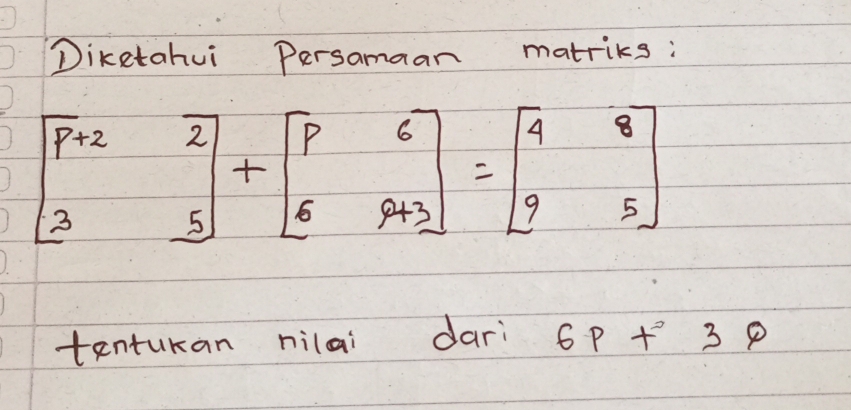 Diketahui Persamaan matriks :
[P+2 2] + [P 6] = [4 8]
[3 5] [6 Q+3] [9 5]
tentukan nilai dari 6P + 3Q